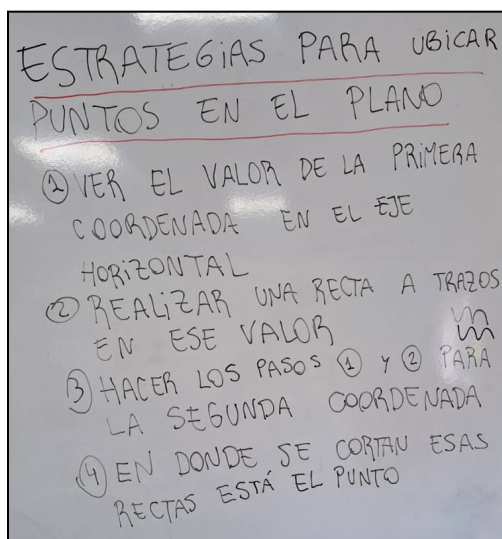 ESTRATEGIAS PARA UBICAR
PUNTOS EN EL PLANO
① VER EL VALOR DE LA PRIMERA
COORDENADA EN EL EJE
HORIZONTAL
② REALIZAR UNA RECTA A TRAZOS
EN ESE VALOR
③ HACER LOS PASOS ① Y ② PARA
LA SEGUNDA COORDENADA
④ EN DONDE SE CORTAN ESAS
RECTAS ESTÁ EL PUNTO